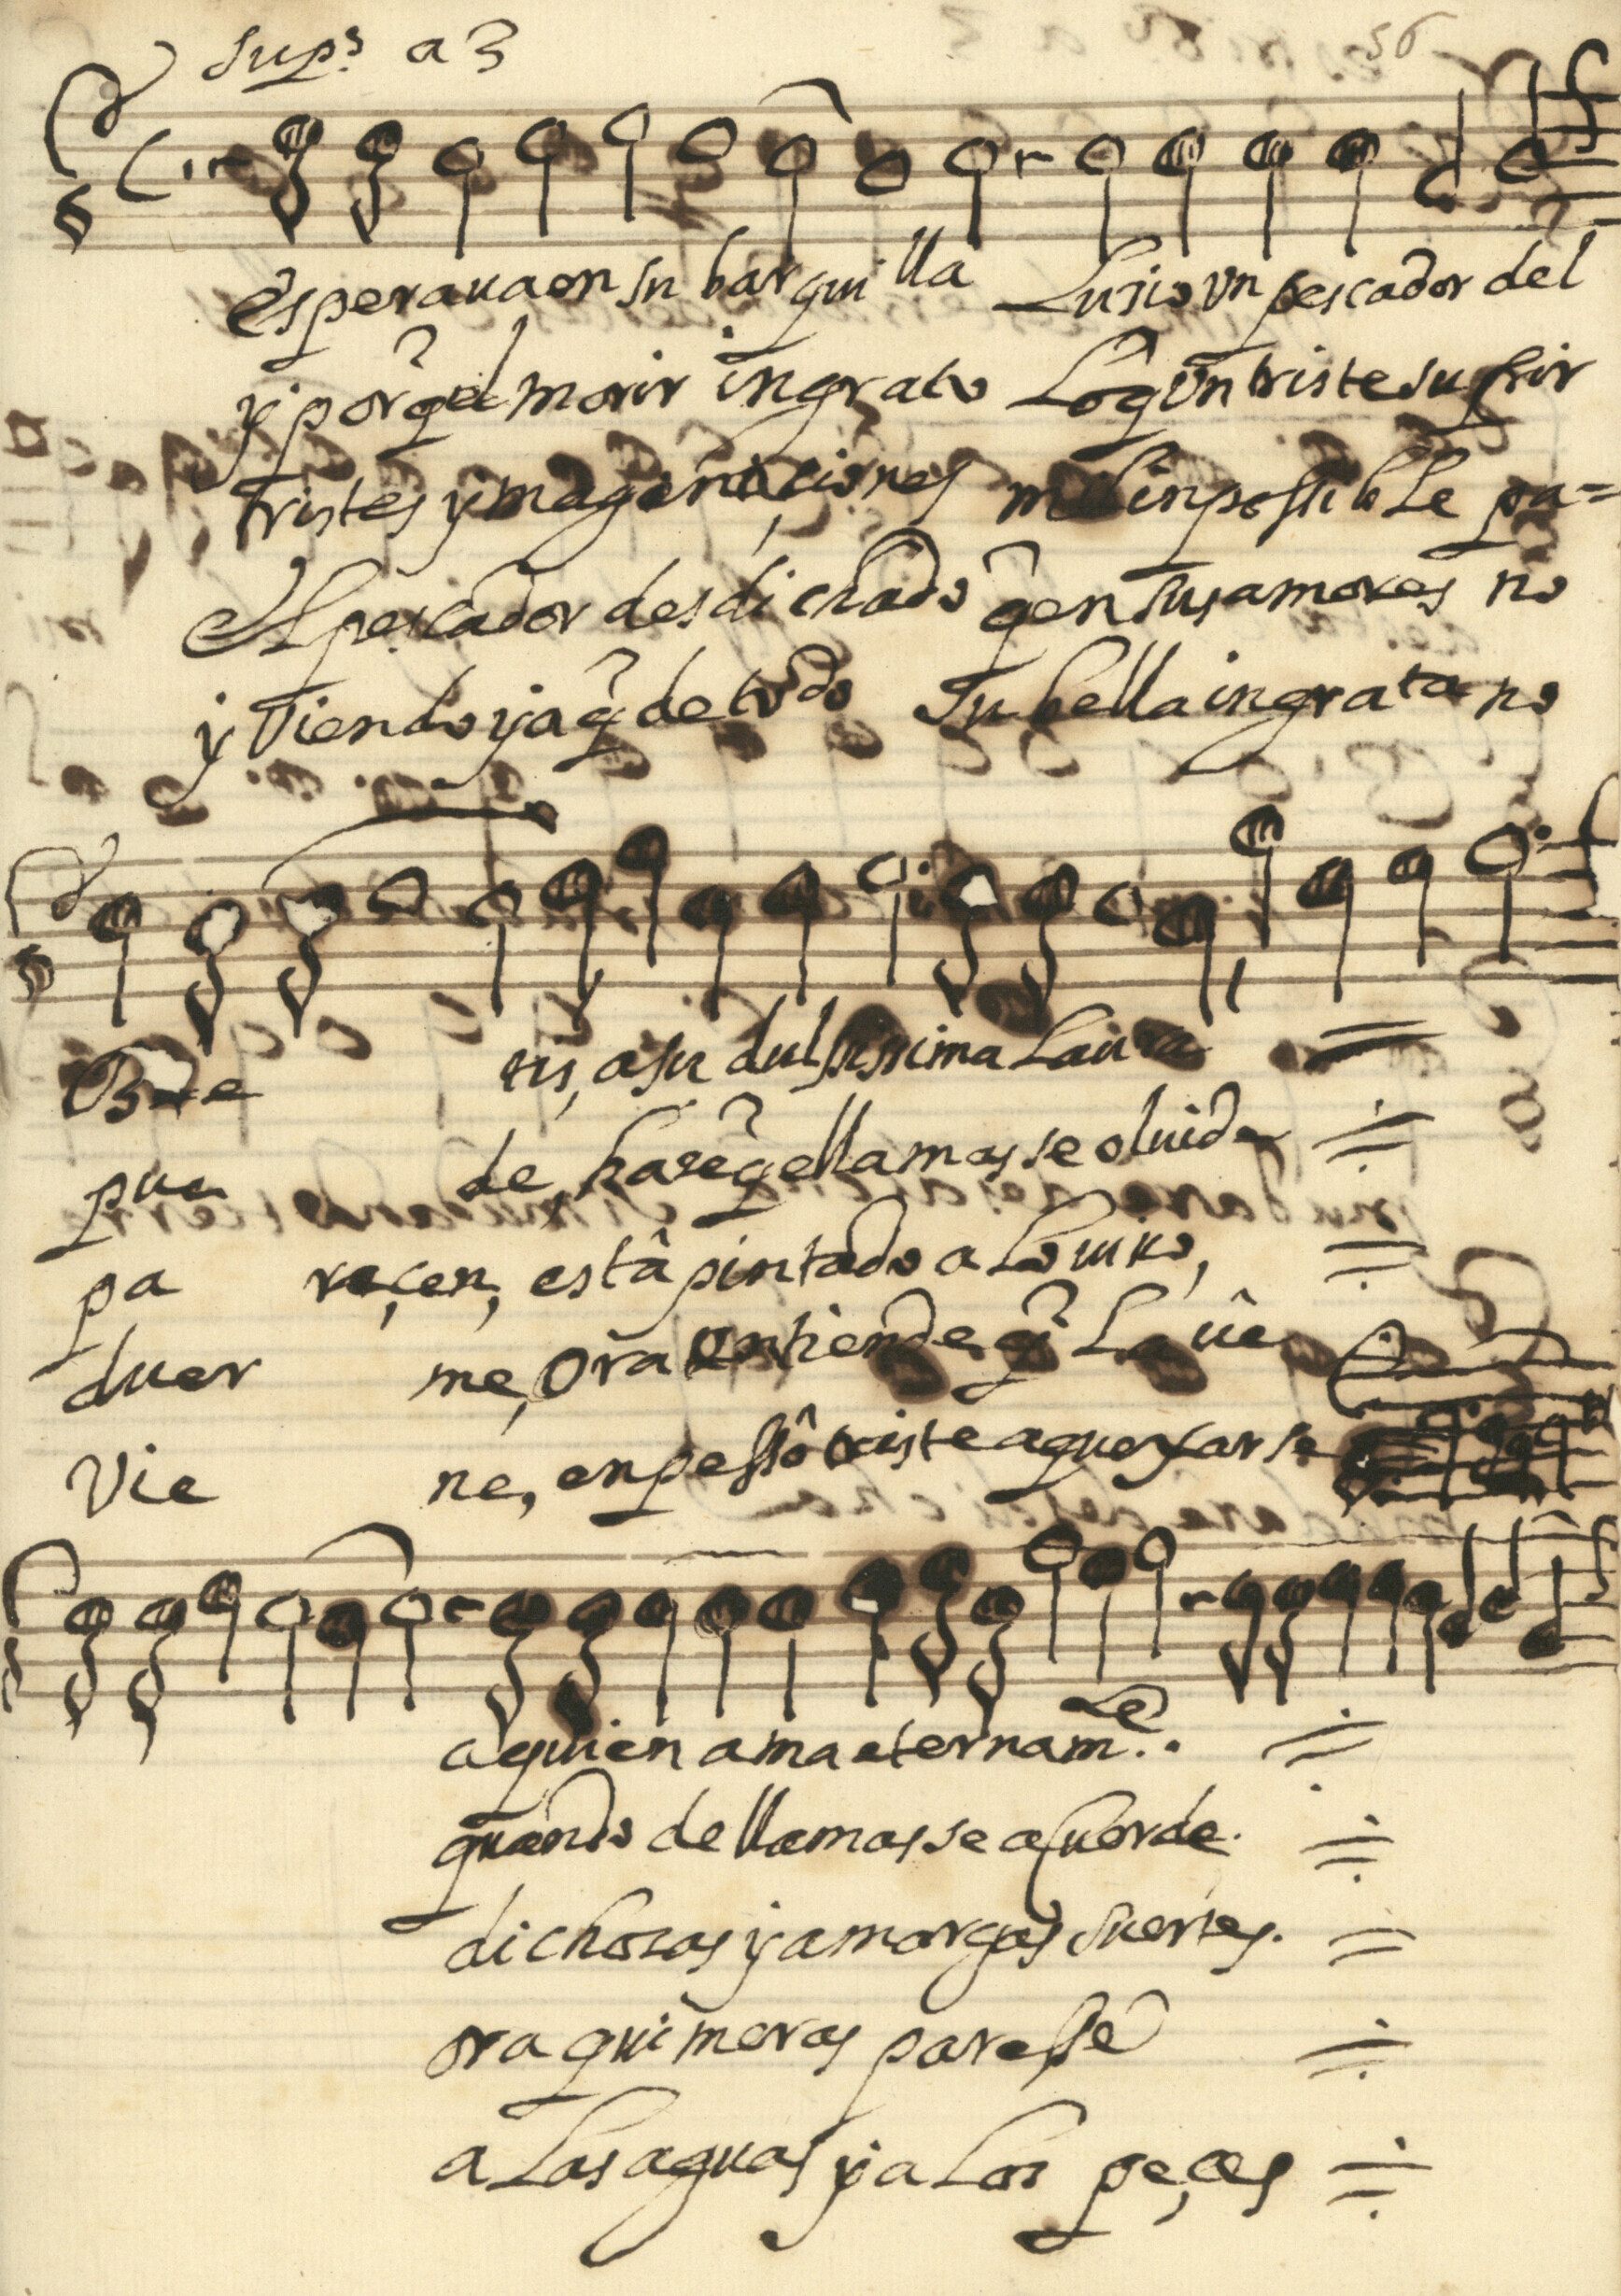 Sup.s a 3
56
esperaua en su barquilla Lisio vn pescador del
y porq̃ el morir ingrato Lo q̃ vn triste sufrir
tristes ymaginaciones mil inpossible pa=
El pescador desdichado q̃ en sus amores no
y viendo ya q̃ de todo su bella ingrata no
Be tis, a su dulsissima Laura
pue de, hase q̃ ella mas se oluide
pa reçen, estâ pintado a lo uiuo,
duer me, ora entiende q̃ La uê
Vie ne, enpessô triste a quexarse
a quien ama eternam.te
quando della mas se acuerde.
dichosas y amargas suertes.
ora quimeras parese
a Las aguas y a Los peçes